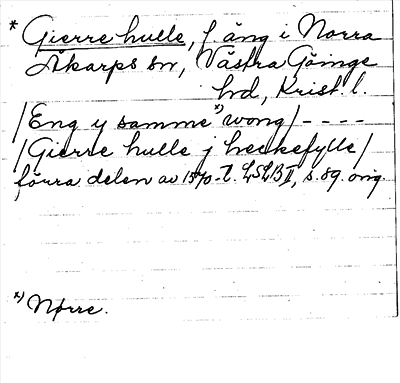 * Gierre hulle, f. äng i Norra
Åkarps sn, Västra Göinge
hd, Krist. l.
/Eng y samme x) wong/----
/Gierre hulle j heckefylle/
förra delen av 1570-t. LSLB II, s. 89. orig.
x) Nørre.